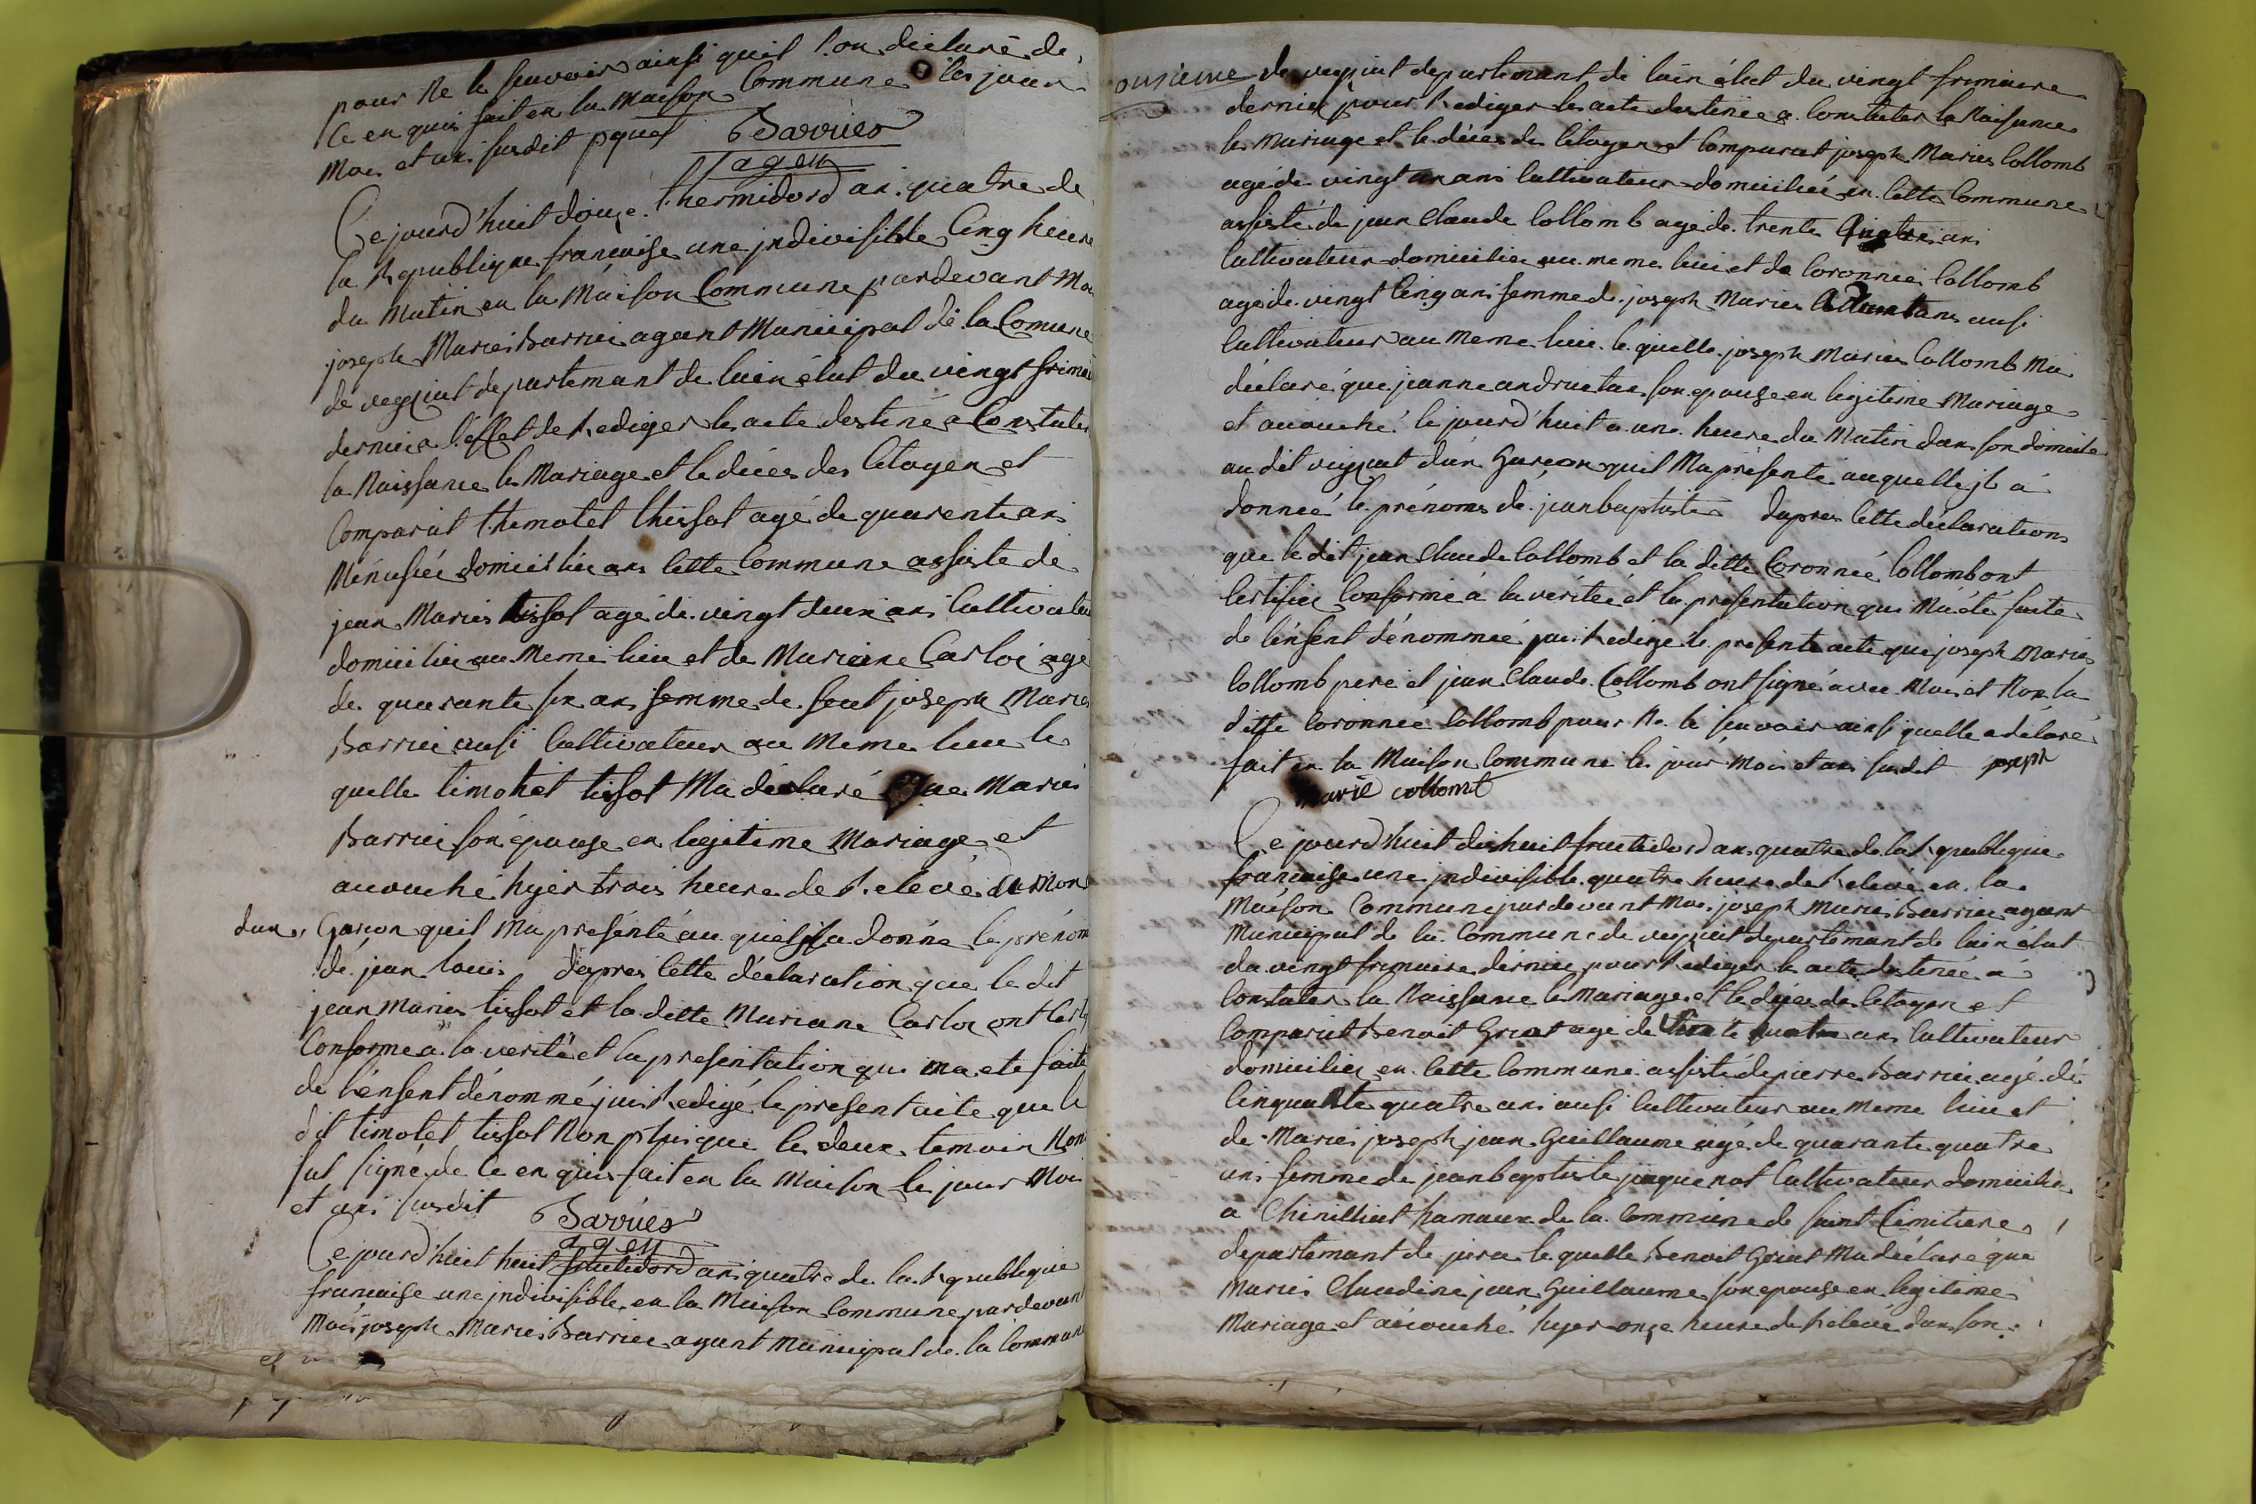 pour ne le scavoir ainsi quil l'on declaré de
ce en quis fait en la maison Commune les jour
Mois et an susdit
Barrier
agen
Cejourd'huit douze thermidord an quatre de
la Republique francaise une jndivisible Cinq heure
du Matin en la Maison Commune pardevant Moi
joseph Marie Barrier agent Municipal de la Comune
de vegziat departemant de lain élut du vingt frimai
dernier a l'effet de Rediger les acte destiné a Constater
la Naissance le Mariage et le décès des Citoyen et
Comparat thimotet thissot agé de quarente ans
Ménusié domicilié an Cette Commune assiste de
jean Marie tissot agé de vingt deux ans Cultivateu
domicilié au Meme lieu et de Mariane Carloi agé
de quarante six ans femme de feut joseph Marie
Barrier ausi Cultivateur au Meme lieu le
quelle timotet tissot Ma declaré que Marie
Barrier son épouse en legitime Mariage et
acouché hyer trois heure de Relévé
dun Garson quil Ma présénté au quel jl a donné le prénom
dé jean louis d'apres Cette déclaration que le dit
jean Marie tissot et la dette Mariane Carloi ont
Conforme a la verité et la présentation qui ma ete faite
de l'énfent dénommé jai Redigé le present acte que le
dit timotet tissot Non plus que les deux temoin Non
sut signé de Ce en quis fait en la Maison le jour Moi
et ans susdit
Barrier
agen
Cejourd'huit huit fructidord an quatre de la Republique
francaise une jndivisible en la Maison Commune pardevan
Moi joseph Marie Barrier agant Municipal de la Commune
onsieme de vegziat departemant de lain élut du vingt frimaire
dernier pour Rediger les acte destinée a Constater la Naisance
le Mariage et le décès des Citoyen et Comparat joseph Marie Collomb
agé de vingt ans Cultivateur domicilié en Cette Commune
assisté de jean Claude Collomb agé de trente quatre ans
Cultivateur domicilié au meme lieu et de Coronnée Collomb
agé de vingt Cinq ans femme de joseph Marie ausi
Cultivateur au Meme lieu le quelle joseph Marie Collomb Ma
déclaré que jeanne andruetan son epouse en legitime Mariage
et acouché le jourd'huit a une heure du Matin dans son domicile
au dit vegziat dun Garcon quil Ma présenté auquelle jl a
donneé le prénoms dé jean baptiste dapres Cette déclarations
que le dit jean Claude Collomb et la dette Coronnée Collomb ont
Certifié Conforme á la véritée et la présentation qui Ma eté faite
de lénfent dénommée jai Redigé le presente acte que joseph Marie
Collomb pere et jean Claude Collomb ont signé avec Moi et Non la
ditte Coronnée Collomb pour Ne le scavoir ainsi quelle a déclaré
fait en la Maison Commune les jour Mois et ans susdit joseph
Marie collomt
Ce jourd'huit dixhuit fructidord an quatre de la Republique
francaise une jndivisible quatre heure de Relevé en la
Maison Commune pardevant Moi joseph Marie Barrier agant
Municipal de la Commune de vegziat departemant de lain élut
du vingt frimaire dernier pour Rediger les acte destinée á
Constater la Naissance le Mariage et le décés de Citoyen et
Comparut Benoit Griat agé de trente quatre ans Cultivateur
domicilier en Cette Commune assisté de pierre Barrier agé de
Cinquante quatre ans ausi Cultivateur au Meme lieu et
de Marie joseph jean Guillaume agé de quarante quatre
ans femme de jean baptiste jaquenot Cultivateur domicilié
a Chinilliat hamaux de la Commune de saint Cimitiere
departemant de jura le quelle Benoit Griat Ma declaré que
Marie Claudine jean Guillaume son epouse en legitime
Mariage et acouché hyer onze heure de Relevé dans son